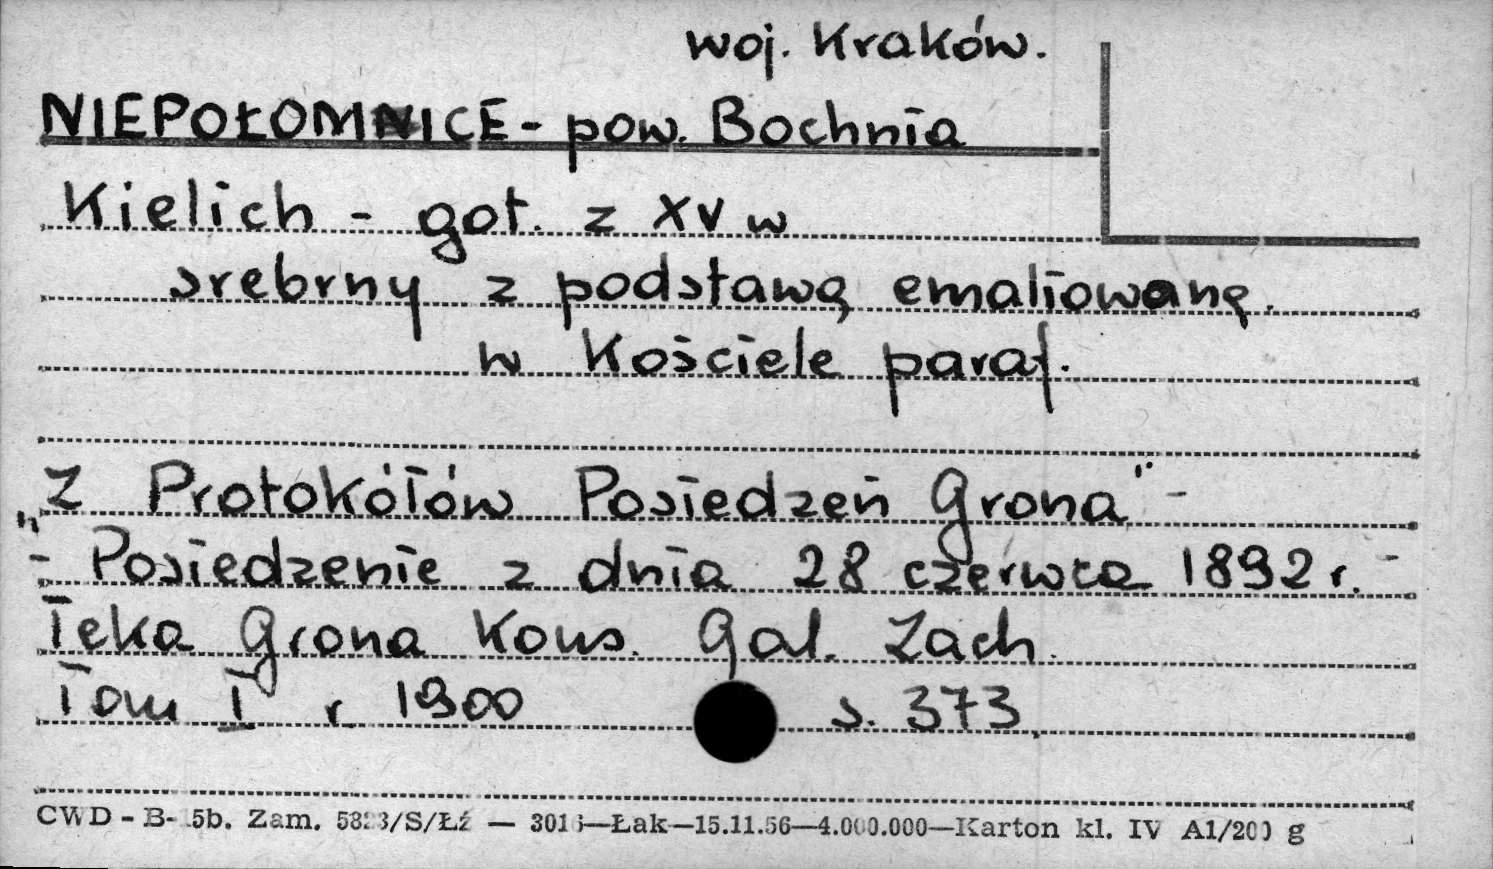 woj. Kraków.
NIEPOŁOMNICE - pow. Bochnia
Kielich - got. z XV w
srebrny z podstawą emaliowaną.
w Kościele paraf.
„Z Protokółów Posiedzeń Grona” -
- Posiedzenie z dnia 28 czerwca 1892 r. -
Teka Grona Kons. Gal. Zach.
Tom I r. 1900 s. 373
CWD - B- 5b. Zam. 5823/S/Łź — 3016—Łak—15.11.56—4.000.000—Karton kl. IV A1/200 g